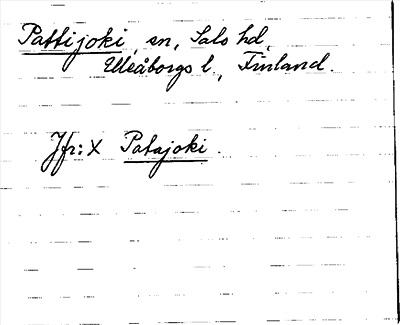 Pattijoki, sn, Salo hd,
Uleåborgs l., Finland.
Jfr: X Patajoki.